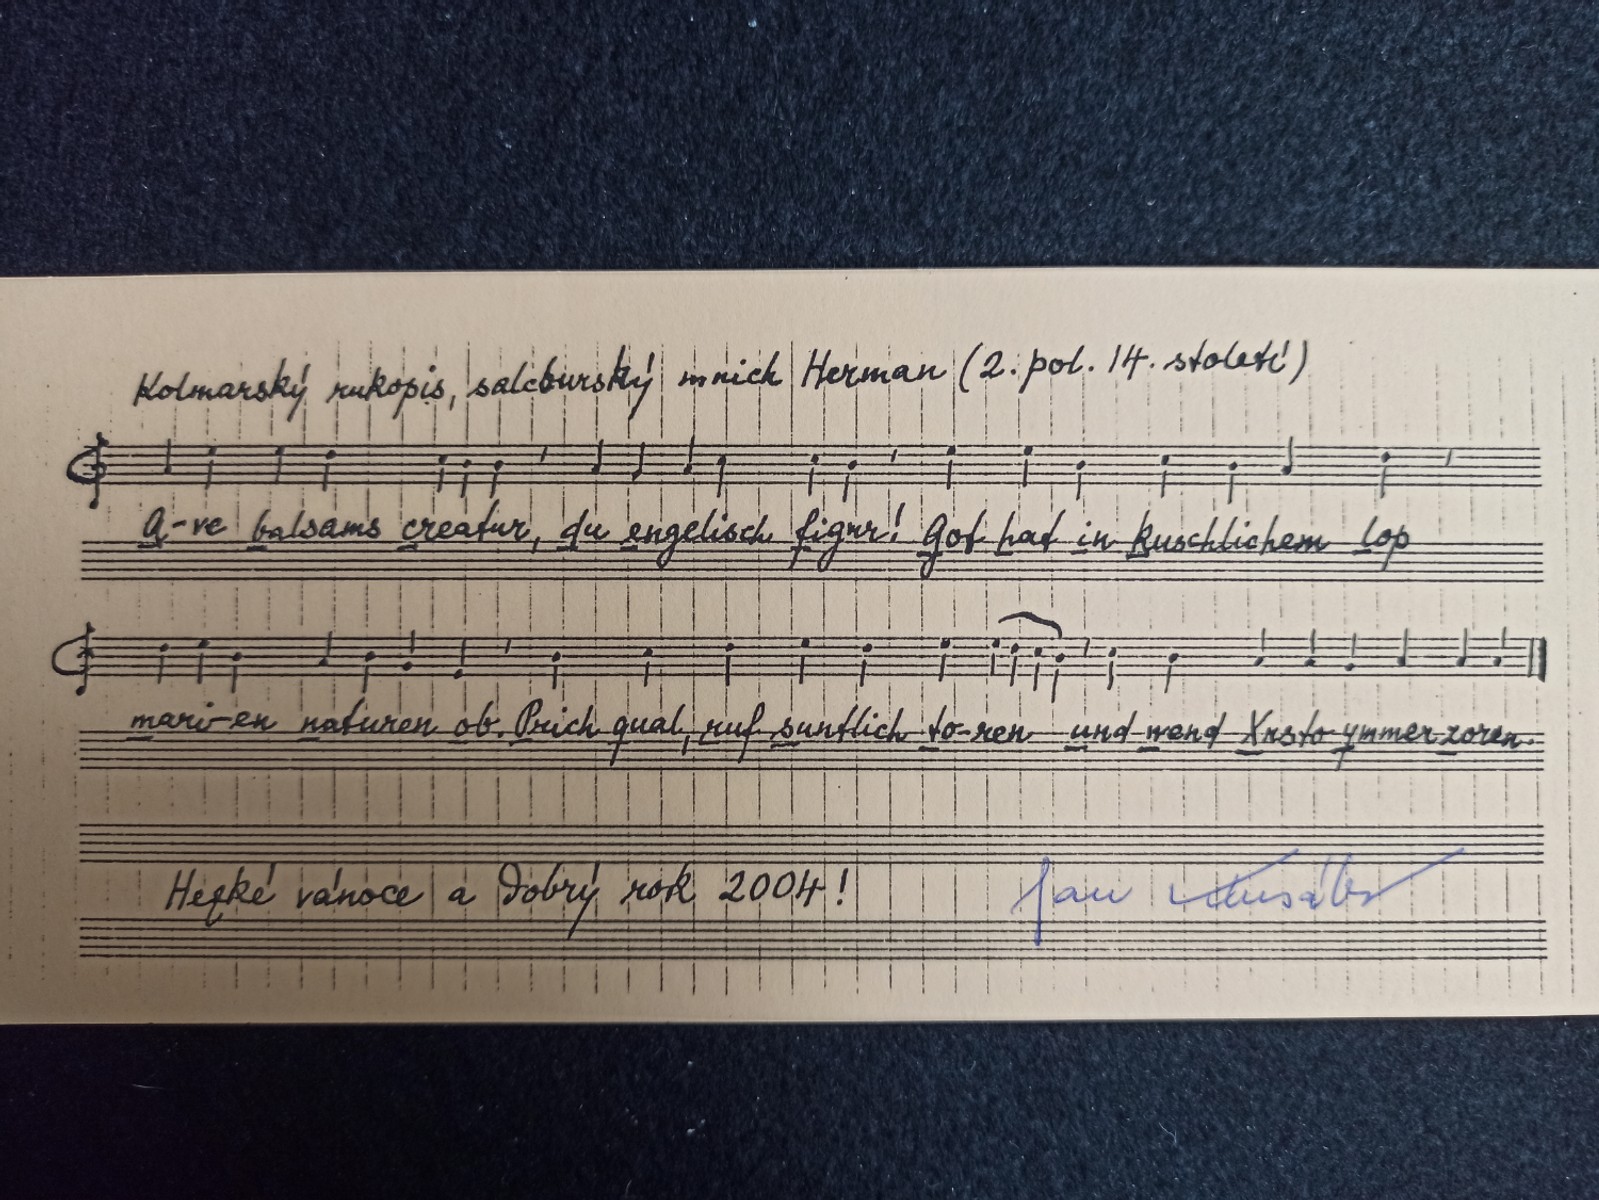 Kolmarský rukopis, salcburský mnich Herman (2. pol. 14. století)
A-ve balsams creatur, du engelisch figur! Got hat in kuschlichem lop
mari-en naturen ob. Prich qual, ruf suntlich to-ren und wend Xrsto ymmer zoren.
Hezké vánoce a Dobrý rok 2004!
Jan